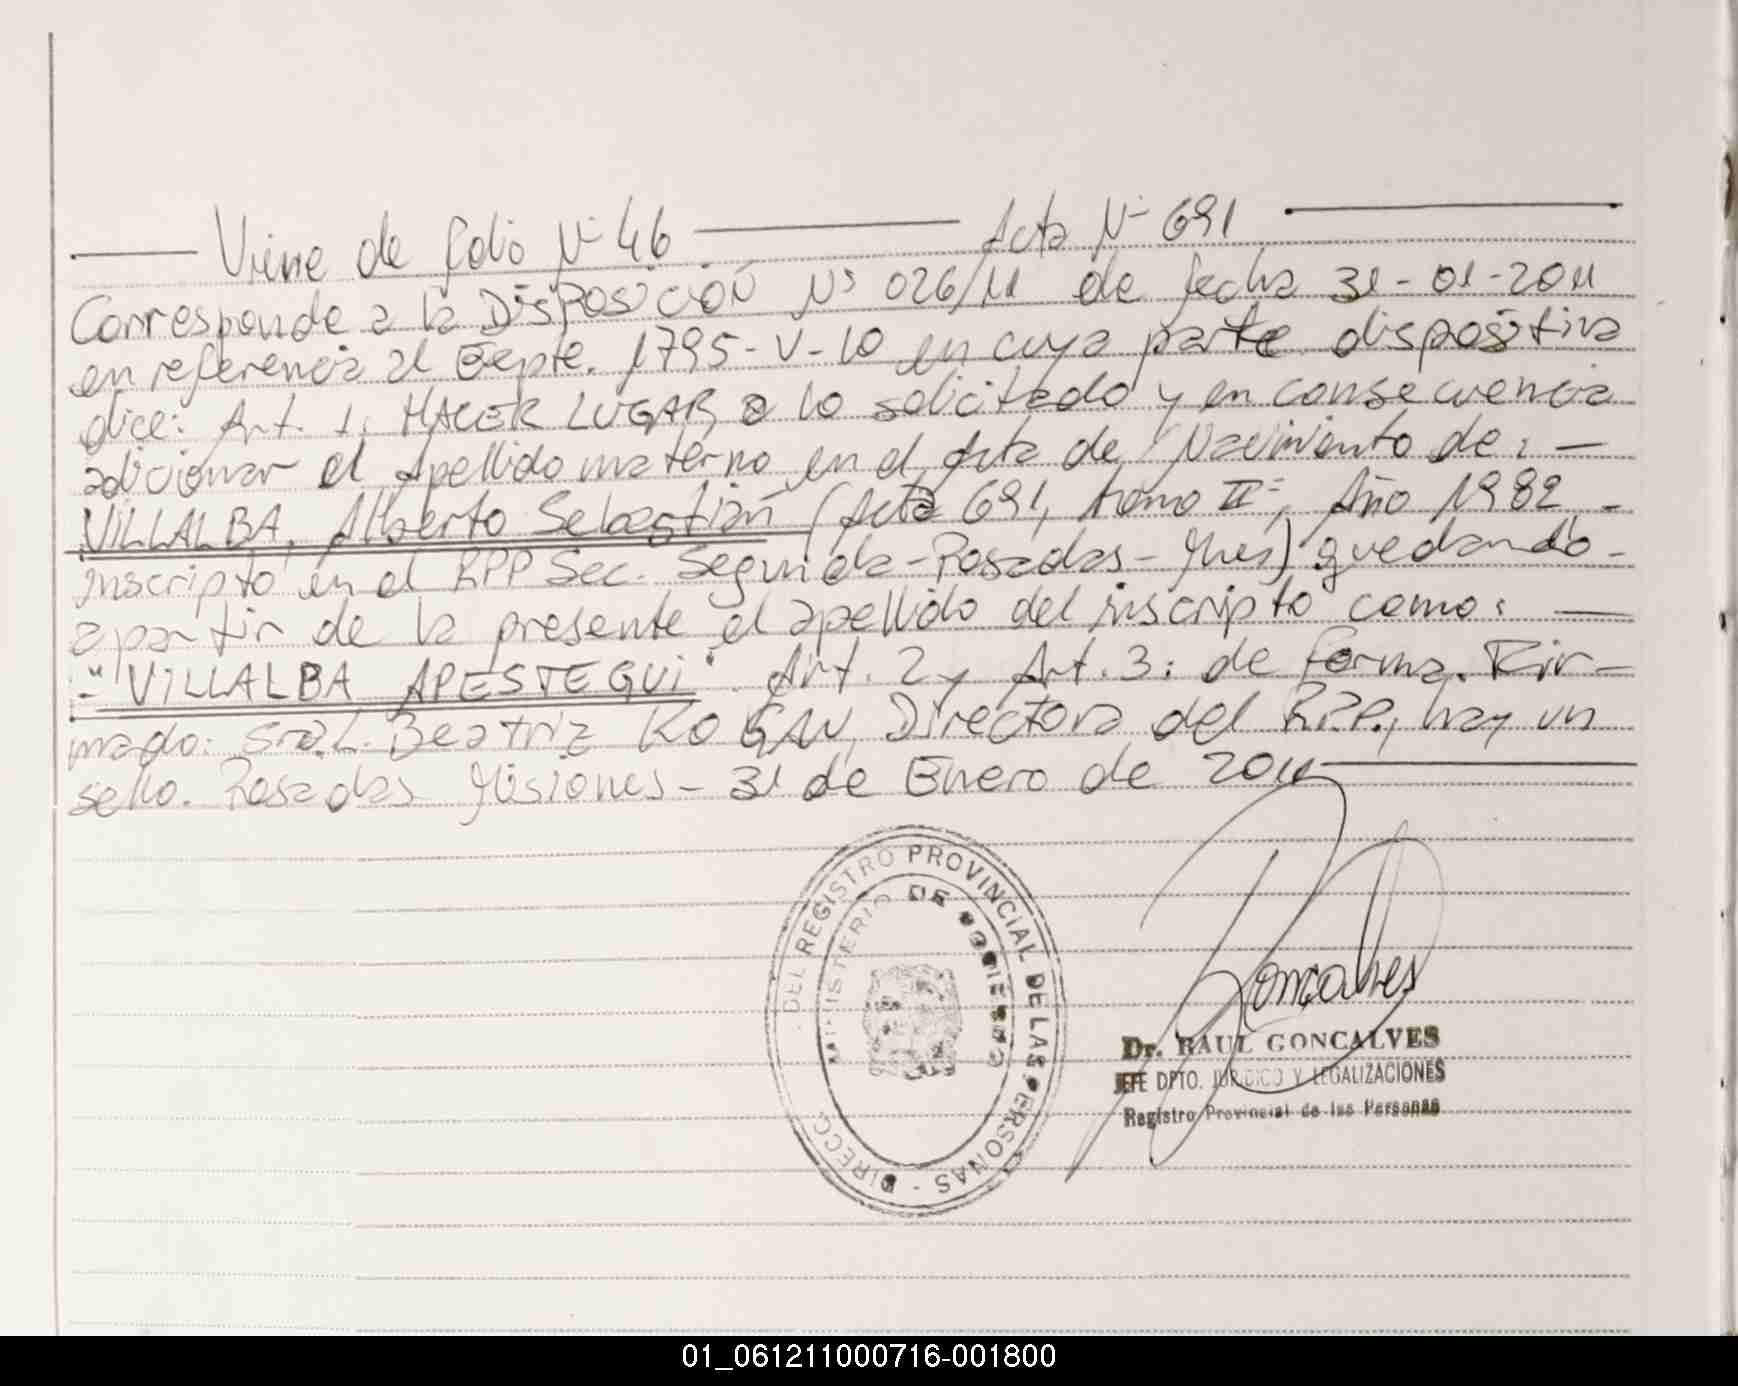 Viene de folio Nº 46 Acta Nº 691
Corresponde a la DISPOSICIÓN Nº 026/11 de fecha 31-01-2011
en referencia al Expte. 1795-V-10 en cuya parte dispositiva
dice: Art. 1, HACER LUGAR a lo solicitado y en consecuencia
adicionar el Apellido materno en el Acta de Nacimiento de: —
VILLALBA, Alberto Sebastián (Acta 691, tomo IIº, Año 1982 -
inscripto en el RPP Sec. Segunda-Posadas-Mnes) quedando -
a partir de la presente el apellido del inscripto como: —
-"VILLALBA APESTEGUI". Art. 2 y Art. 3: de forma. Fir-
mado: Sra. L. Beatriz KOGAN, Directora del R.P.P., hay un
sello. Posadas Misiones - 31 de Enero de 2011
DIRECC. DEL REGISTRO PROVINCIAL DE LAS PERSONAS -
MINISTERIO DE GOBIERNO
Goncalves
Dr. RAUL GONCALVES
JEFE DPTO. JURIDICO Y LEGALIZACIONES
Registro Provincial de las Personas
01_061211000716-001800